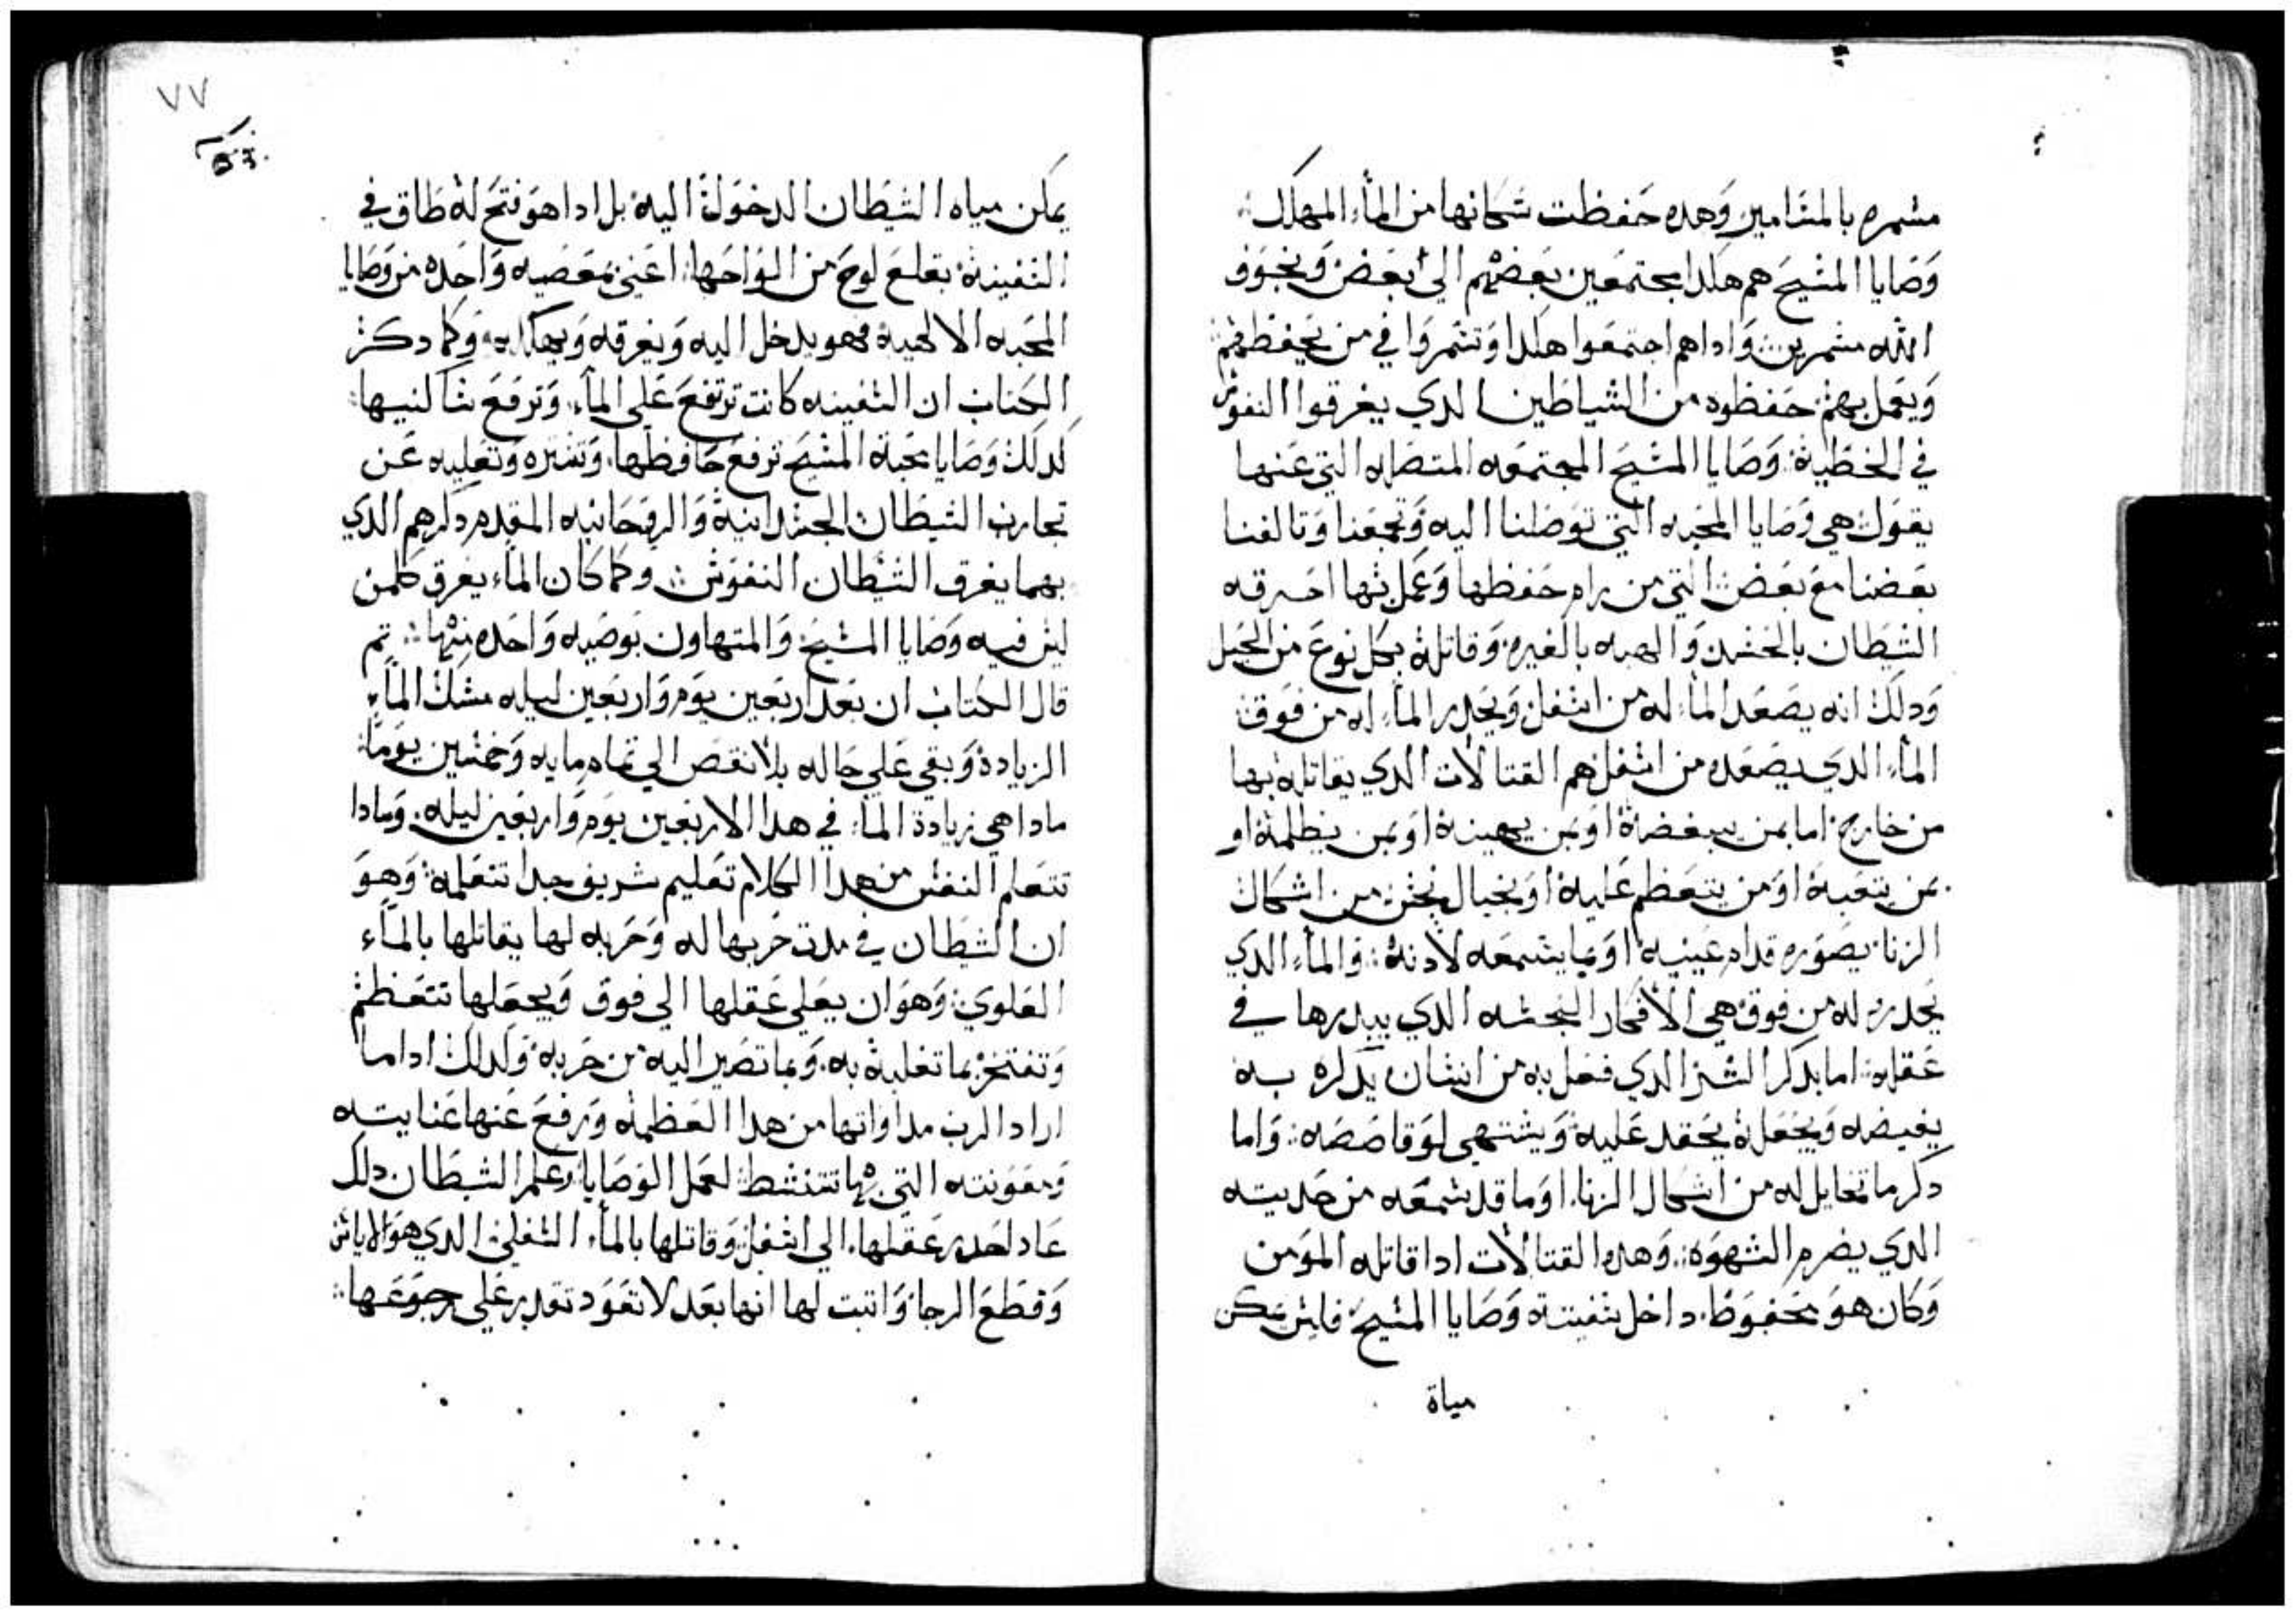 مسمره بالمسامير وهده حفظت سكانها من الماء المهلك
وصايا المسيح هم هكدا مجتمعين بعضهم الي بعض وبخوف
الله مسمرين واداهم اجتمعوا هكدا وتسمروا في من يحفظهم
ويعمل بهم حفظوه من الشياطين الدي يغرقوا النفوس
في الخطية وصايا المسيح المجتمعه المتصله التي عنها
يقول هي وصايا المحبه التي توصلنا اليه وتجمعنا وتالفنا
بعضنا مع بعض التي من رام حفظها وعمل بها احرقه
الشيطان بالحسد والهبه بالغيره وقاتله بكل نوع من الحيل
ودلك انه يصعد الماء له من اسفل ويحدر الماء له من فوق
الماء الدي يصعده من اسفل هم القتالات الدي يقاتله بها
من خارج اما بمن يبغضه او بمن يهينه او بمن يظلمه او
بمن يتعبه او من يتعظم عليه او بخيال نجس من اشكال
الزنا يصوره قدام عينيه او بما يسمعه لادنه والماء الدي
يحدره له من فوق هي الافكار النجسه الدي يبدرها في
عقله اما بدكر الشر الدي فعل به من انسان يدكره به
يغيضه ويجعله يحقد عليه ويشتهي لو قاصصه واما
دكر ما تخايل له من اشكال الزنا او ما قد سمعه من حديته
الدي يضرم الشهوه وهده القتالات ادا قاتله المومن
وكان هو محفوظ داخل سفينة وصايا المسيح فليس يمكن
مياة
٧٧
يمكن مياه الشيطان الدخول اليه بل ادا هو فتح له طاق في
السفينة بقلع لوح من الواحها اعني بمعصيه واحده من وصايا
المحبه الالهية فهو يدخل اليه ويغرقه ويهلكه وكما دكر
الكتاب ان السفينه كانت ترتفع علي الماء وترفع ساكنيها
كدلك وصايا محبة المسيح ترفع حافظها وتستره وتعليه عن
تجارب الشيطان الجسدانية والروحانيه المقدم دكرهم الدي
بهما يغرق الشيطان النفوس وكما كان الماء يغرق كلمن
ليس فيه وصايا المسيح والمتهاون بوصيه واحده منها تم
قال الكتاب ان بعد اربعين يوم واربعين ليله مسك الماء
الزيادة وبقي علي حاله بلا نقص الي تمام مايه وخمسين يوما
مادا هي زيادة الماء في هدا الاربعين يوم واربعين ليله ومادا
تتعلم النفس من هدا الكلام تعليم شريف جدا تتعلمه وهو
ان الشيطان في مدت حربها له وحربه لها يقاتلها بالماء
العلوي وهو ان يعلي عقلها الي فوق ويجعلها تتعظم
وتفتخر بما تغلبه به وبما تصير اليه من حربه ولدلك ادا ما
اراد الرب مداواتها من هدا العظمه ورفع عنها عنايته
ومعونته التي بها تتنشط لعمل الوصايا وعلم الشيطان دلك
عاد احدر عقلها الي اسفل وقاتلها بالماء السفلي الدي هو الاياس
وقطع الرجا واتبت لها انها بعد لا تعود تقدر علي رجوعها